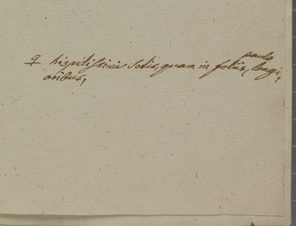 ♀ hispidissimi setis, quam in foliis, paulo longi-
oribus,